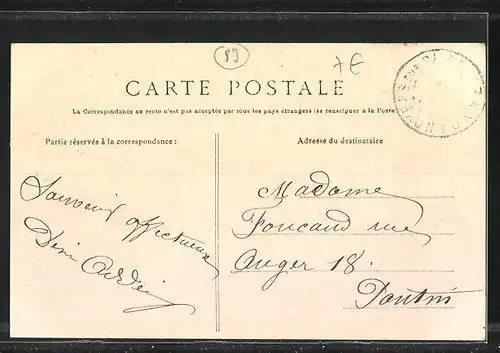 89
7€
CARTE POSTALE
La Correspondance au recto n'est pas acceptée par tous les pays étrangers (se renseigner à la Poste
Partie réservée à la correspondance :
Adresse du destinataire
Souvenir affectueux
Madame
Foucaud rue
Auger 18.
Pantin